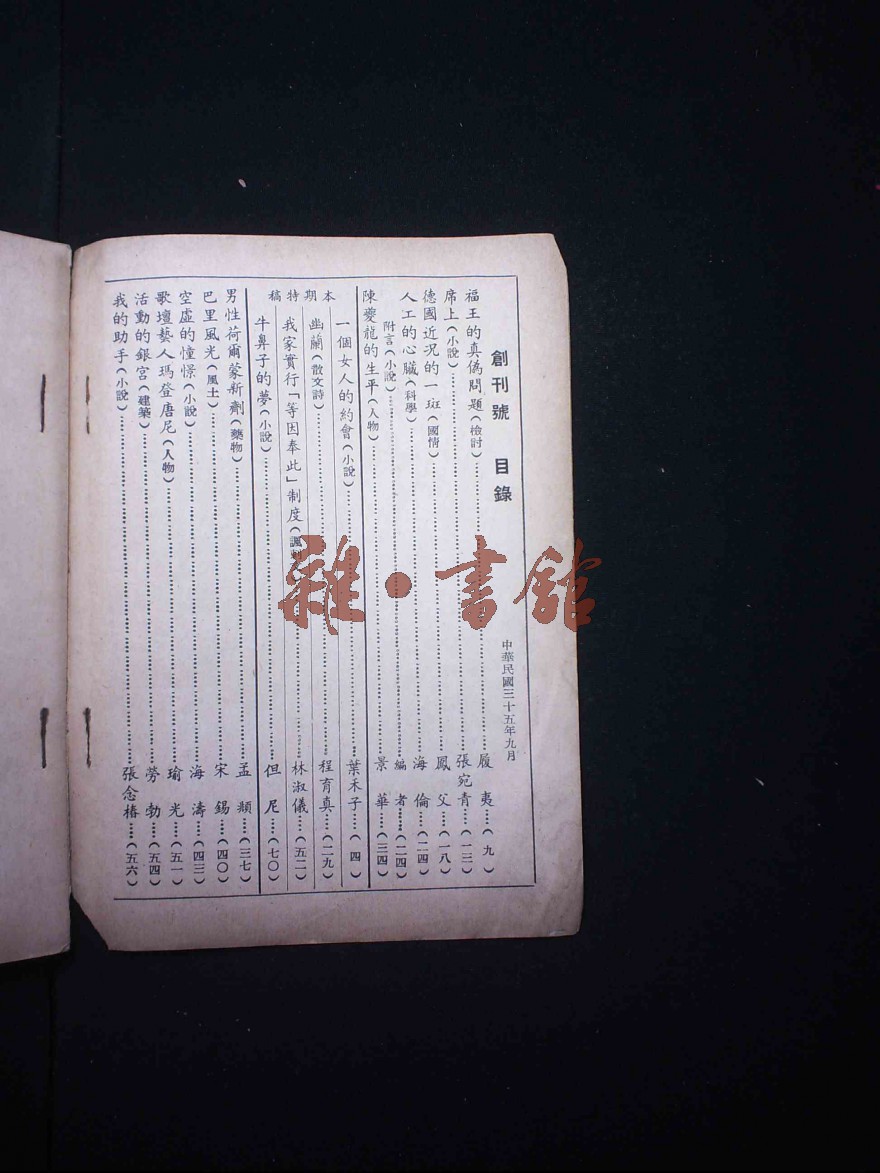 創刊號 目錄
中華民國三十五年九月
福王的真僞問題(檢討)……履夷……(九)
席上(小說)……張宛青……(一三)
德國近況的一斑(國情)……鳳父……(一八)
人工的心臟(科學)……海倫……(二四)
附言(小說)……編者……(二四)
陳夔龍的生平(人物)……景華……(三四)
本期特稿
一個女人的約會(小說)……葉禾子……(四)
幽蘭(散文詩)……程育真……(二九)
我家實行「等因奉此」制度……林淑儀……(五二)
牛鼻子的夢(小說)……但尼……(七〇)
男性荷爾蒙新劑(藥物)……孟頻……(三七)
巴里風光(風土)……宋錫……(四〇)
空虛的憧憬(小說)……海濤……(四三)
歌壇藝人瑪登唐尼(人物)……瑜光……(五一)
活動的銀宮(建築)……勞勃……(五四)
我的助手(小說)……張念椿……(五六)
雜·書館